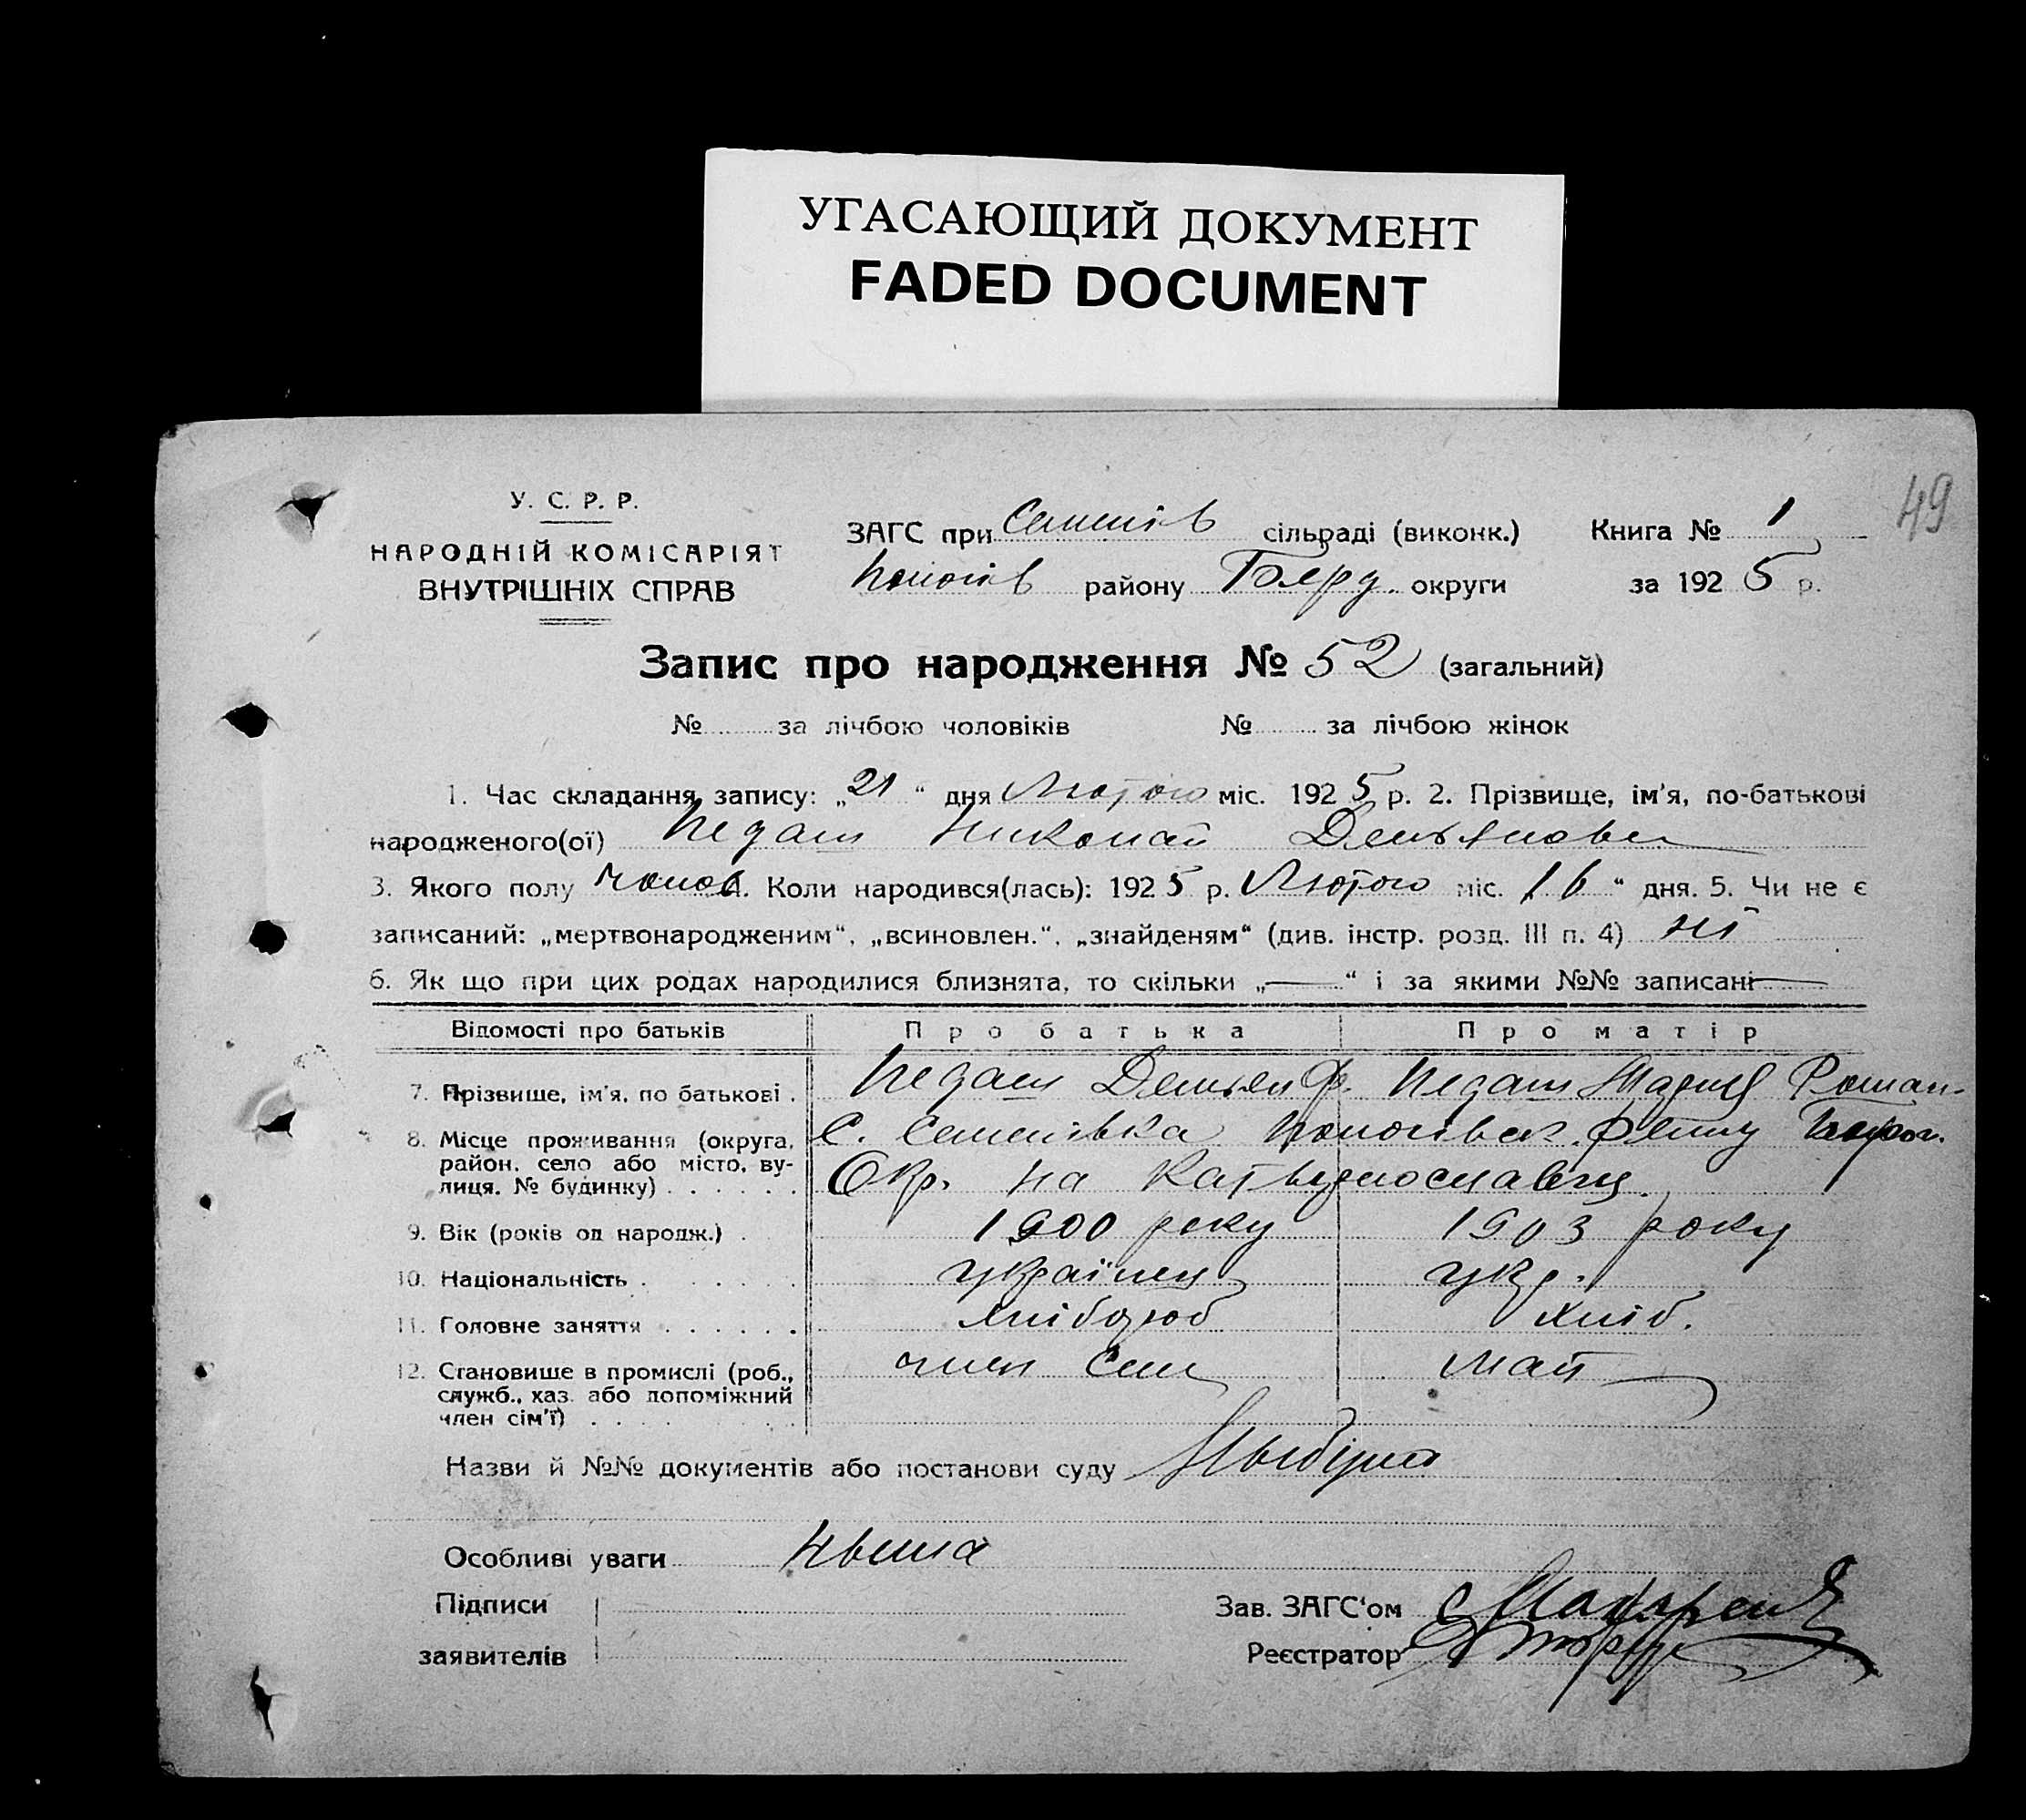 УГАСАЮЩИЙ ДОКУМЕНТ
FADED DOCUMENT
49
У. С. Р. Р.
НАРОДНІЙ КОМІСАРІЯТ
ВНУТРІШНІХ СПРАВ
ЗАГС при Семенів сільраді (виконк.) Книга № 1
району округи за 1925 р.
Запис про народження № 52 (загальний)
№ за лічбою чоловіків № за лічбою жінок
1. Час складання запису: „21“ дня Лютого міс. 1925 р. 2. Прізвище, ім'я, по-батькові
народженого(ої) Николай
3. Якого полу чолов. 4. Коли народився(лась): 1925 р. Лютого міс. 16“ дня. 5. Чи не є
записаний: „мертвонародженим“, „всиновлен.“, „знайденям“ (див. інстр. розд. III п. 4) ні
6. Як що при цих родах народилися близнята, то скільки „—“ і за якими №№ записані —
Відомості про батьків Про батька Про матір
7. Прізвише, ім'я, по батькові . Демьян Ф. Мария Роман.
8. Місце проживання (округа, С. Семенівка
район, село або місто, ву- Окр. на
лиця. № будинку) . . . . . .
9. Вік (років од народж.) . 1900 року 1903 року
10. Національність . . . . . українец укр.
11. Головне заняття . . . . . . хлібороб хліб.
12. Становише в промислі (роб., член сем
служб., хаз. або допоміжний
член сім'ї) . . . .
Назви й №№ документів або постанови суду
Особливі уваги
Підписи Зав. ЗАГС'ом
заявителів Реєстратор